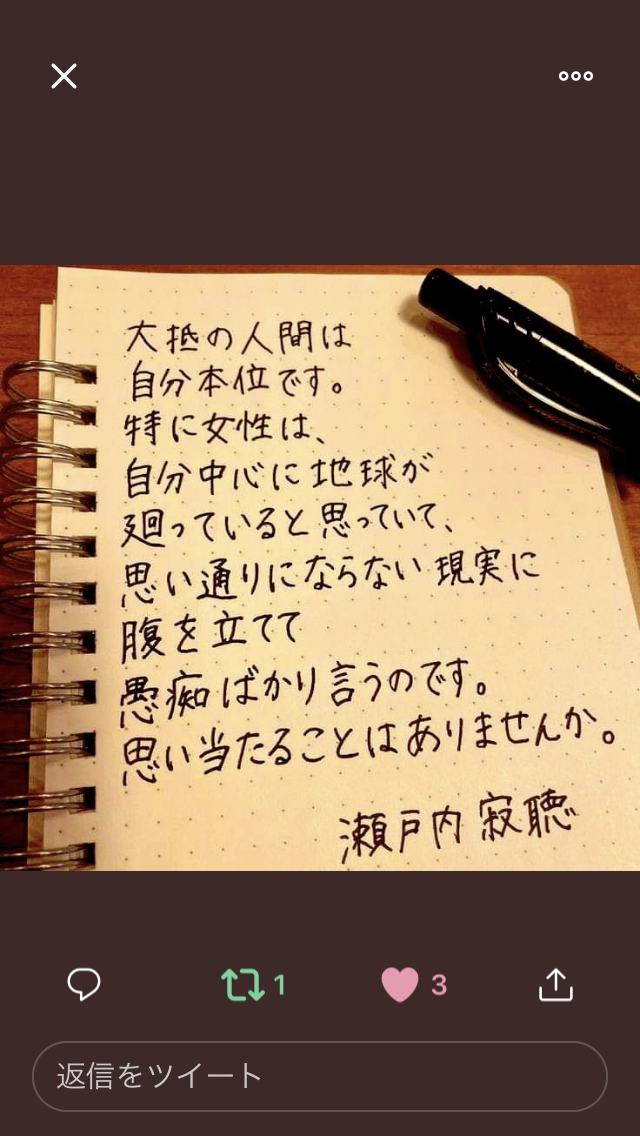 大抵の人間は
自分本位です。
特に女性は、
自分中心に地球が
廻っていると思っていて、
思い通りにならない現実に
腹を立てて
愚痴ばかり言うのです。
思い当たることはありませんか。
瀬戸内寂聴
1
3
返信をツイート